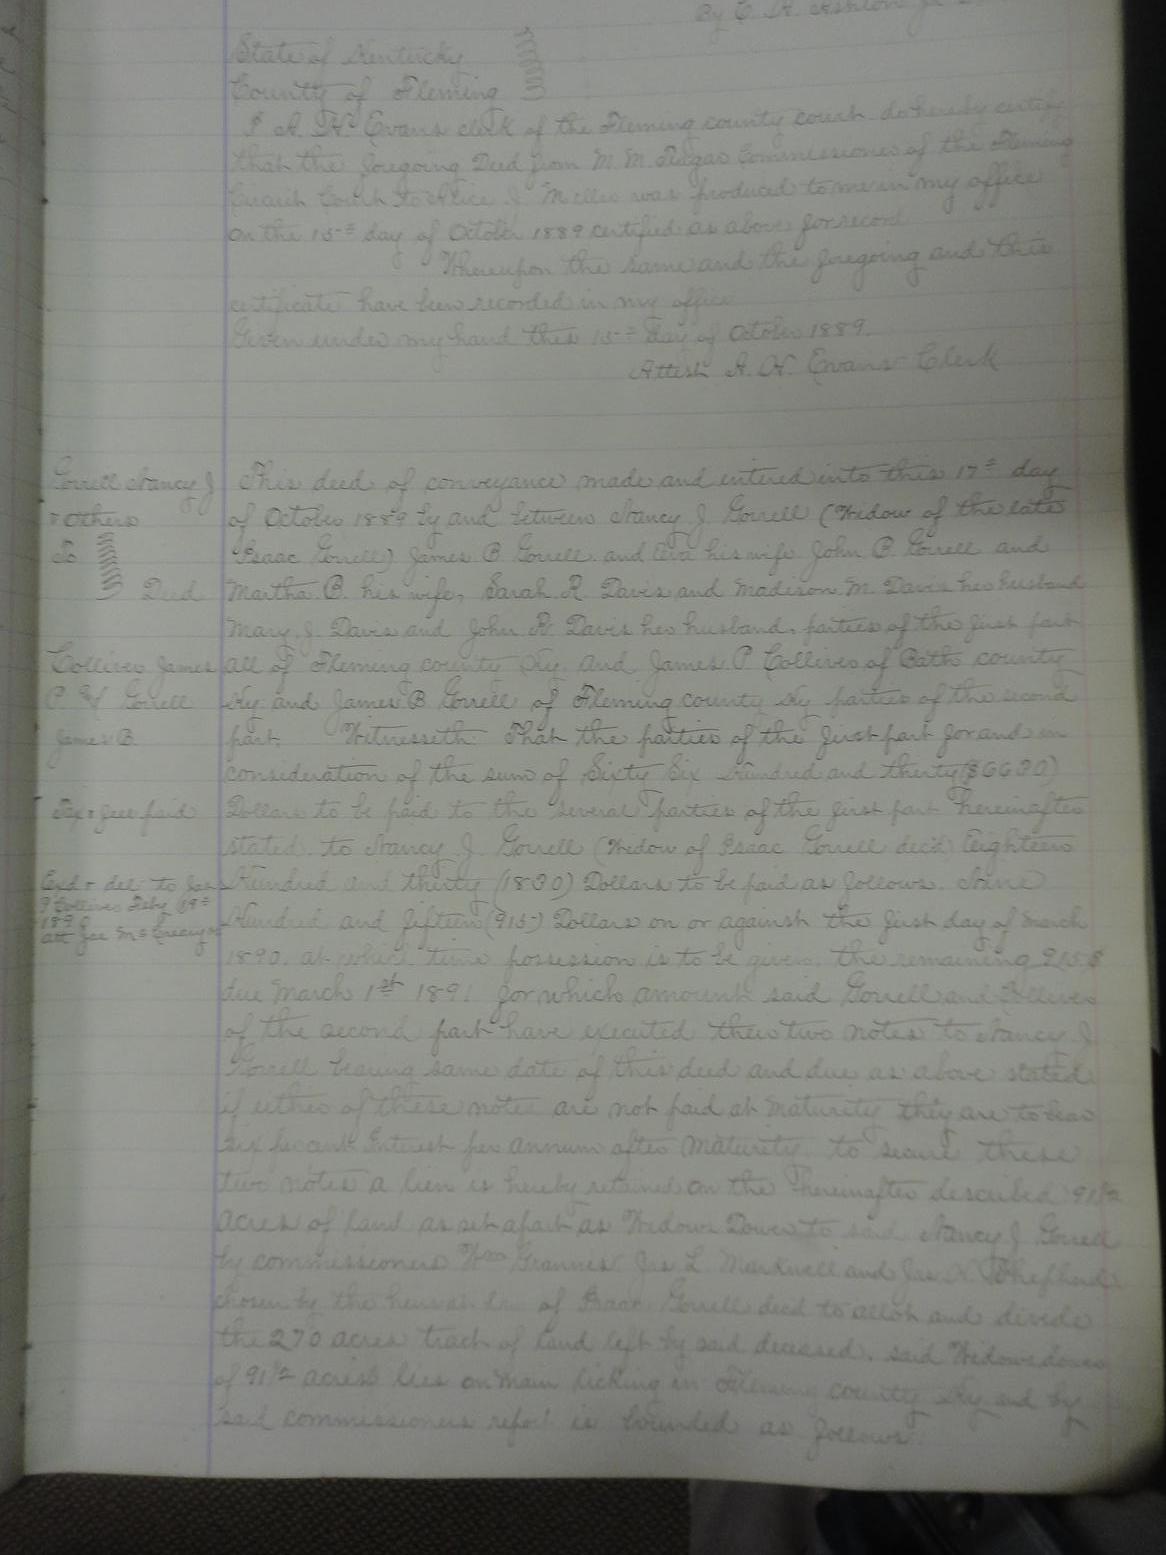 By C. A. Ashton
State of Kentucky
County of Fleming
I A. H. Evans clerk of the Fleming county court do hereby certify
that the foregoing Deed from M. M. Commissioner of the Fleming
Circuit Court to Alice J Miller was produced to me in my office
on the 15th day of October 1889 certified as above for record
Whereupon the same and the foregoing and this
certificate have been recorded in my office
Given under my hand this 15th day of October 1889.
Attest A. H. Evans Clerk
Gorrell Nancy J
& others
To
Deed
Colliver James
P. & Gorrell
James B.
Tax & fee paid
Exd & del to Jas
P Colliver Feby 19th
1890
att Jas McCreary
This deed of conveyance made and entered into this 17th day
of October 1889 by and between Nancy J Gorrell (Widow of the late
Isaac Gorrell) James B Gorrell and his wife John B. Gorrell and
Martha B. his wife, Sarah R Davis and Madison M. Davis her husband
Mary J. Davis and John R. Davis her husband, parties of the first part
all of Fleming county Ky and James P Colliver of Bath county
Ky and James B Gorrell of Fleming county Ky parties of the second
part. Witnesseth That the parties of the first part for and in
consideration of the sum of Sixty Six Hundred and thirty ($6630)
Dollars to be paid to the several parties of the first part hereinafter
stated to Nancy J. Gorrell (Widow of Isaac Gorrell decd) Eighteen
Hundred and thirty (1830) Dollars to be paid as follows. Nine
Hundred and fifteen (915) Dollars on or against the first day of March
1890. at which time possession is to be given. the remaining 915$
due March 1st 1891 for which amounts said Gorrell and Colliver
of the second part have executed their two notes to Nancy J
Gorrell bearing same date of this deed and due as above stated
if either of these notes are not paid at maturity they are to bear
six per cent Interest per annum after maturity. to secure these
two notes a lien is hereby retained on the hereinafter described 91½
acres of land as set apart as Widows Dower to said Nancy J Gorrell
by commissioners Wm Grannis. Jas L. Markwell and Jas Shepherd
chosen by the heirs at law of Isaac Gorrell decd to allot and divide
the 270 acres tract of land left by said deceased. said Widows dower
of 91½ acres lies on Main Licking in Fleming county Ky and by
said commissioners report is bounded as follows